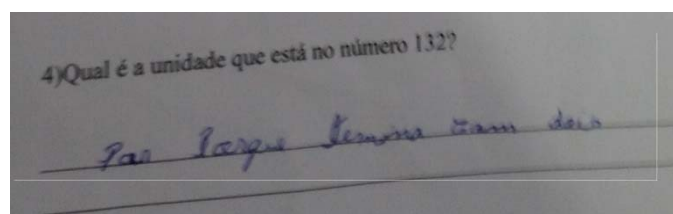 4)Qual é a unidade que está no número 132?
Par Porque termina com dois